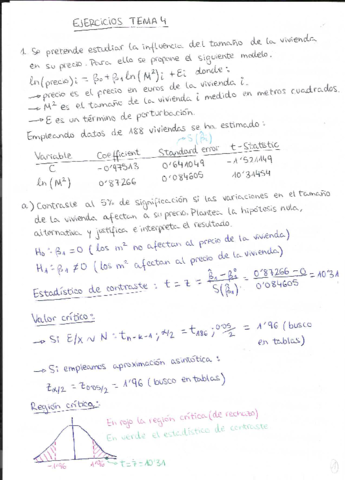 EJERCICIOS TEMA 4
1. Se pretende estudiar la influencia del tamaño de la vivienda
en su precio. Para ello se propone el siguiente modelo.
ln(precio)i = β0 + β1 ln(M²)i + Ei donde:
→ precio es el precio en euros de la vivienda i.
→ M² es el tamaño de la vivienda i medido en metros cuadrados.
→ E es un término de perturbación.
Empleando datos de 188 viviendas se ha estimado:
Variable Coefficient Standard error t-Statistic
C -0'97513 0'641049 -1'521149
ln(M²) 0'87266 0'084605 10'31454
a) Contraste al 5% de significación si las variaciones en el tamaño
de la vivienda afectan a su precio. Plantea la hipótesis nula,
alternativa y justifica e interpreta el resultado.
H0: β1 = 0 (los m² no afectan al precio de la vivienda)
H1: β1 ≠ 0 (los m² afectan al precio de la vivienda)
Estadístico de contraste: t = z = (β̂1 - β1⁰) / S(β̂1) = (0'87266 - 0) / 0'084605 = 10'31
Valor crítico:
→ Si E/X ~ N: tn-k-1; α/2 = t186; 0'05/2 = 1'96 (busco
en tablas)
→ Si empleamos aproximación asintótica:
zα/2 = z0'05/2 = 1'96 (busco en tablas)
Región crítica:
En rojo la región crítica (de rechazo)
En verde el estadístico de contraste
-1'96 1'96 t=z=10'31